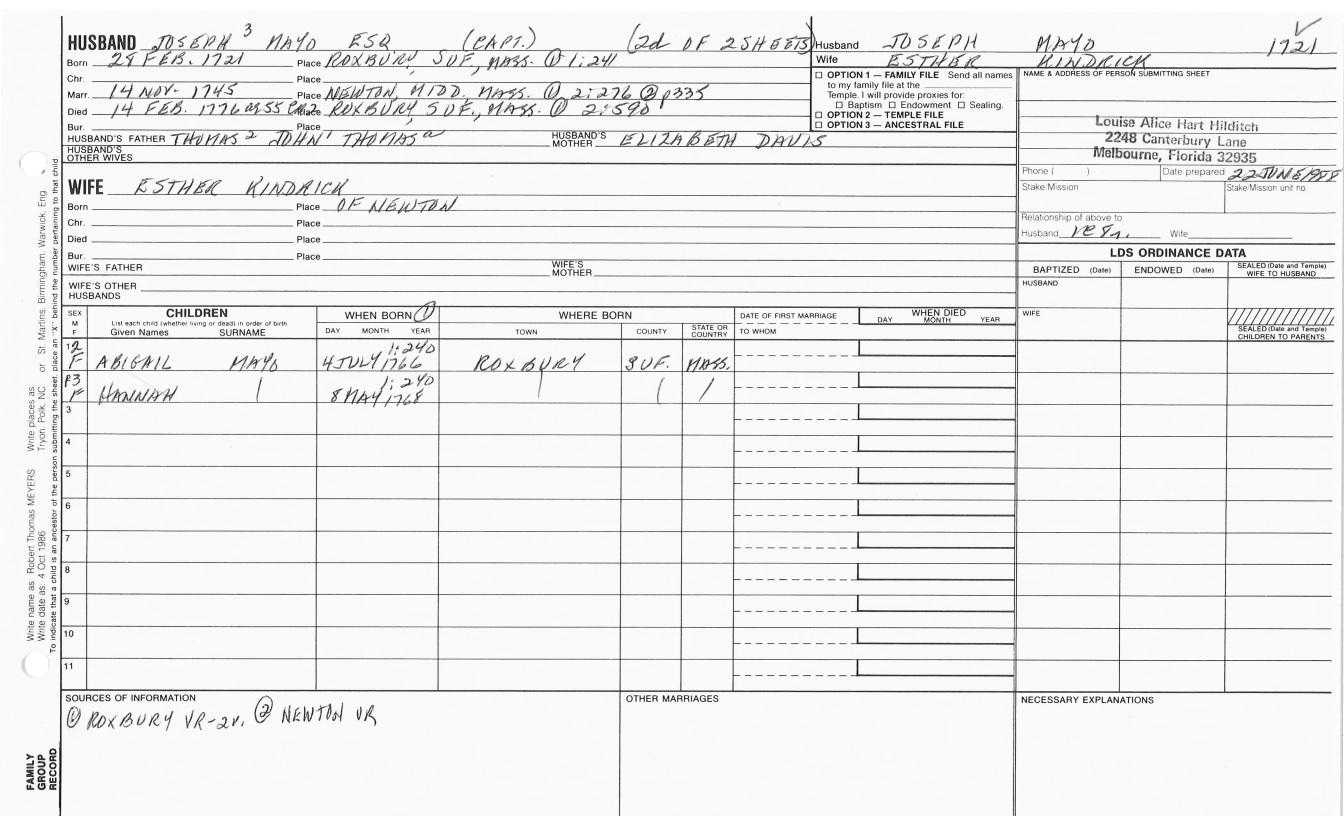 HUSBAND JOSEPH 3 MAYO ESQ (CAPT.) (2d OF 2 SHEETS)
Born 28 FEB. 1721 Place ROXBURY, SUF., MASS. ① 1:241
Chr. Place
Marr. 14 NOV. 1745 Place NEWTON, MIDD. MASS. ① 2:276 ② p335
Died 14 FEB. 1776 Place ROXBURY, SUF., MASS. ① 2:590
Bur. Place
HUSBAND'S FATHER THOMAS 2 JOHN 1 THOMAS a HUSBAND'S MOTHER ELIZABETH DAVIS
HUSBAND'S OTHER WIVES
WIFE ESTHER KINDRICK
Born Place OF NEWTON
Chr. Place
Died Place
Bur. Place
WIFE'S FATHER WIFE'S MOTHER
WIFE'S OTHER HUSBANDS
Husband JOSEPH MAYO 1721
Wife ESTHER KINDRICK
☐ OPTION 1 — FAMILY FILE Send all names
to my family file at the
Temple. I will provide proxies for:
☐ Baptism ☐ Endowment ☐ Sealing.
☐ OPTION 2 — TEMPLE FILE
☐ OPTION 3 — ANCESTRAL FILE
NAME & ADDRESS OF PERSON SUBMITTING SHEET
Louise Alice Hart Hilditch
2248 Canterbury Lane
Melbourne, Florida 32935
Phone ( ) Date prepared 22 JUNE 1988
Stake/Mission Stake/Mission unit no.
Relationship of above to
Husband Wife
LDS ORDINANCE DATA
BAPTIZED (Date) ENDOWED (Date) SEALED (Date and Temple) WIFE TO HUSBAND
HUSBAND
WIFE
SEALED (Date and Temple) CHILDREN TO PARENTS
SEX M F CHILDREN WHEN BORN ① WHERE BORN DATE OF FIRST MARRIAGE WHEN DIED
List each child (whether living or dead) in order of birth
Given Names SURNAME DAY MONTH YEAR TOWN COUNTY STATE OR COUNTRY TO WHOM DAY MONTH YEAR
1 12 F ABIGAIL MAYO 4 JULY 1766 1:240 ROXBURY SUF. MASS.
13 F HANNAH 8 MAY 1768 1:240
3
4
5
6
7
8
9
10
11
SOURCES OF INFORMATION
① ROXBURY VR-2v. ② NEWTON VR
OTHER MARRIAGES
NECESSARY EXPLANATIONS
Write name as Robert Thomas MEYERS Write places as Tryon, Polk, NC or St. Martins, Birmingham, Warwick, Eng
Write date as: 4 Oct 1986
To indicate that a child is an ancestor of the person submitting the sheet, place an "X" behind the number pertaining to that child
FAMILY GROUP RECORD